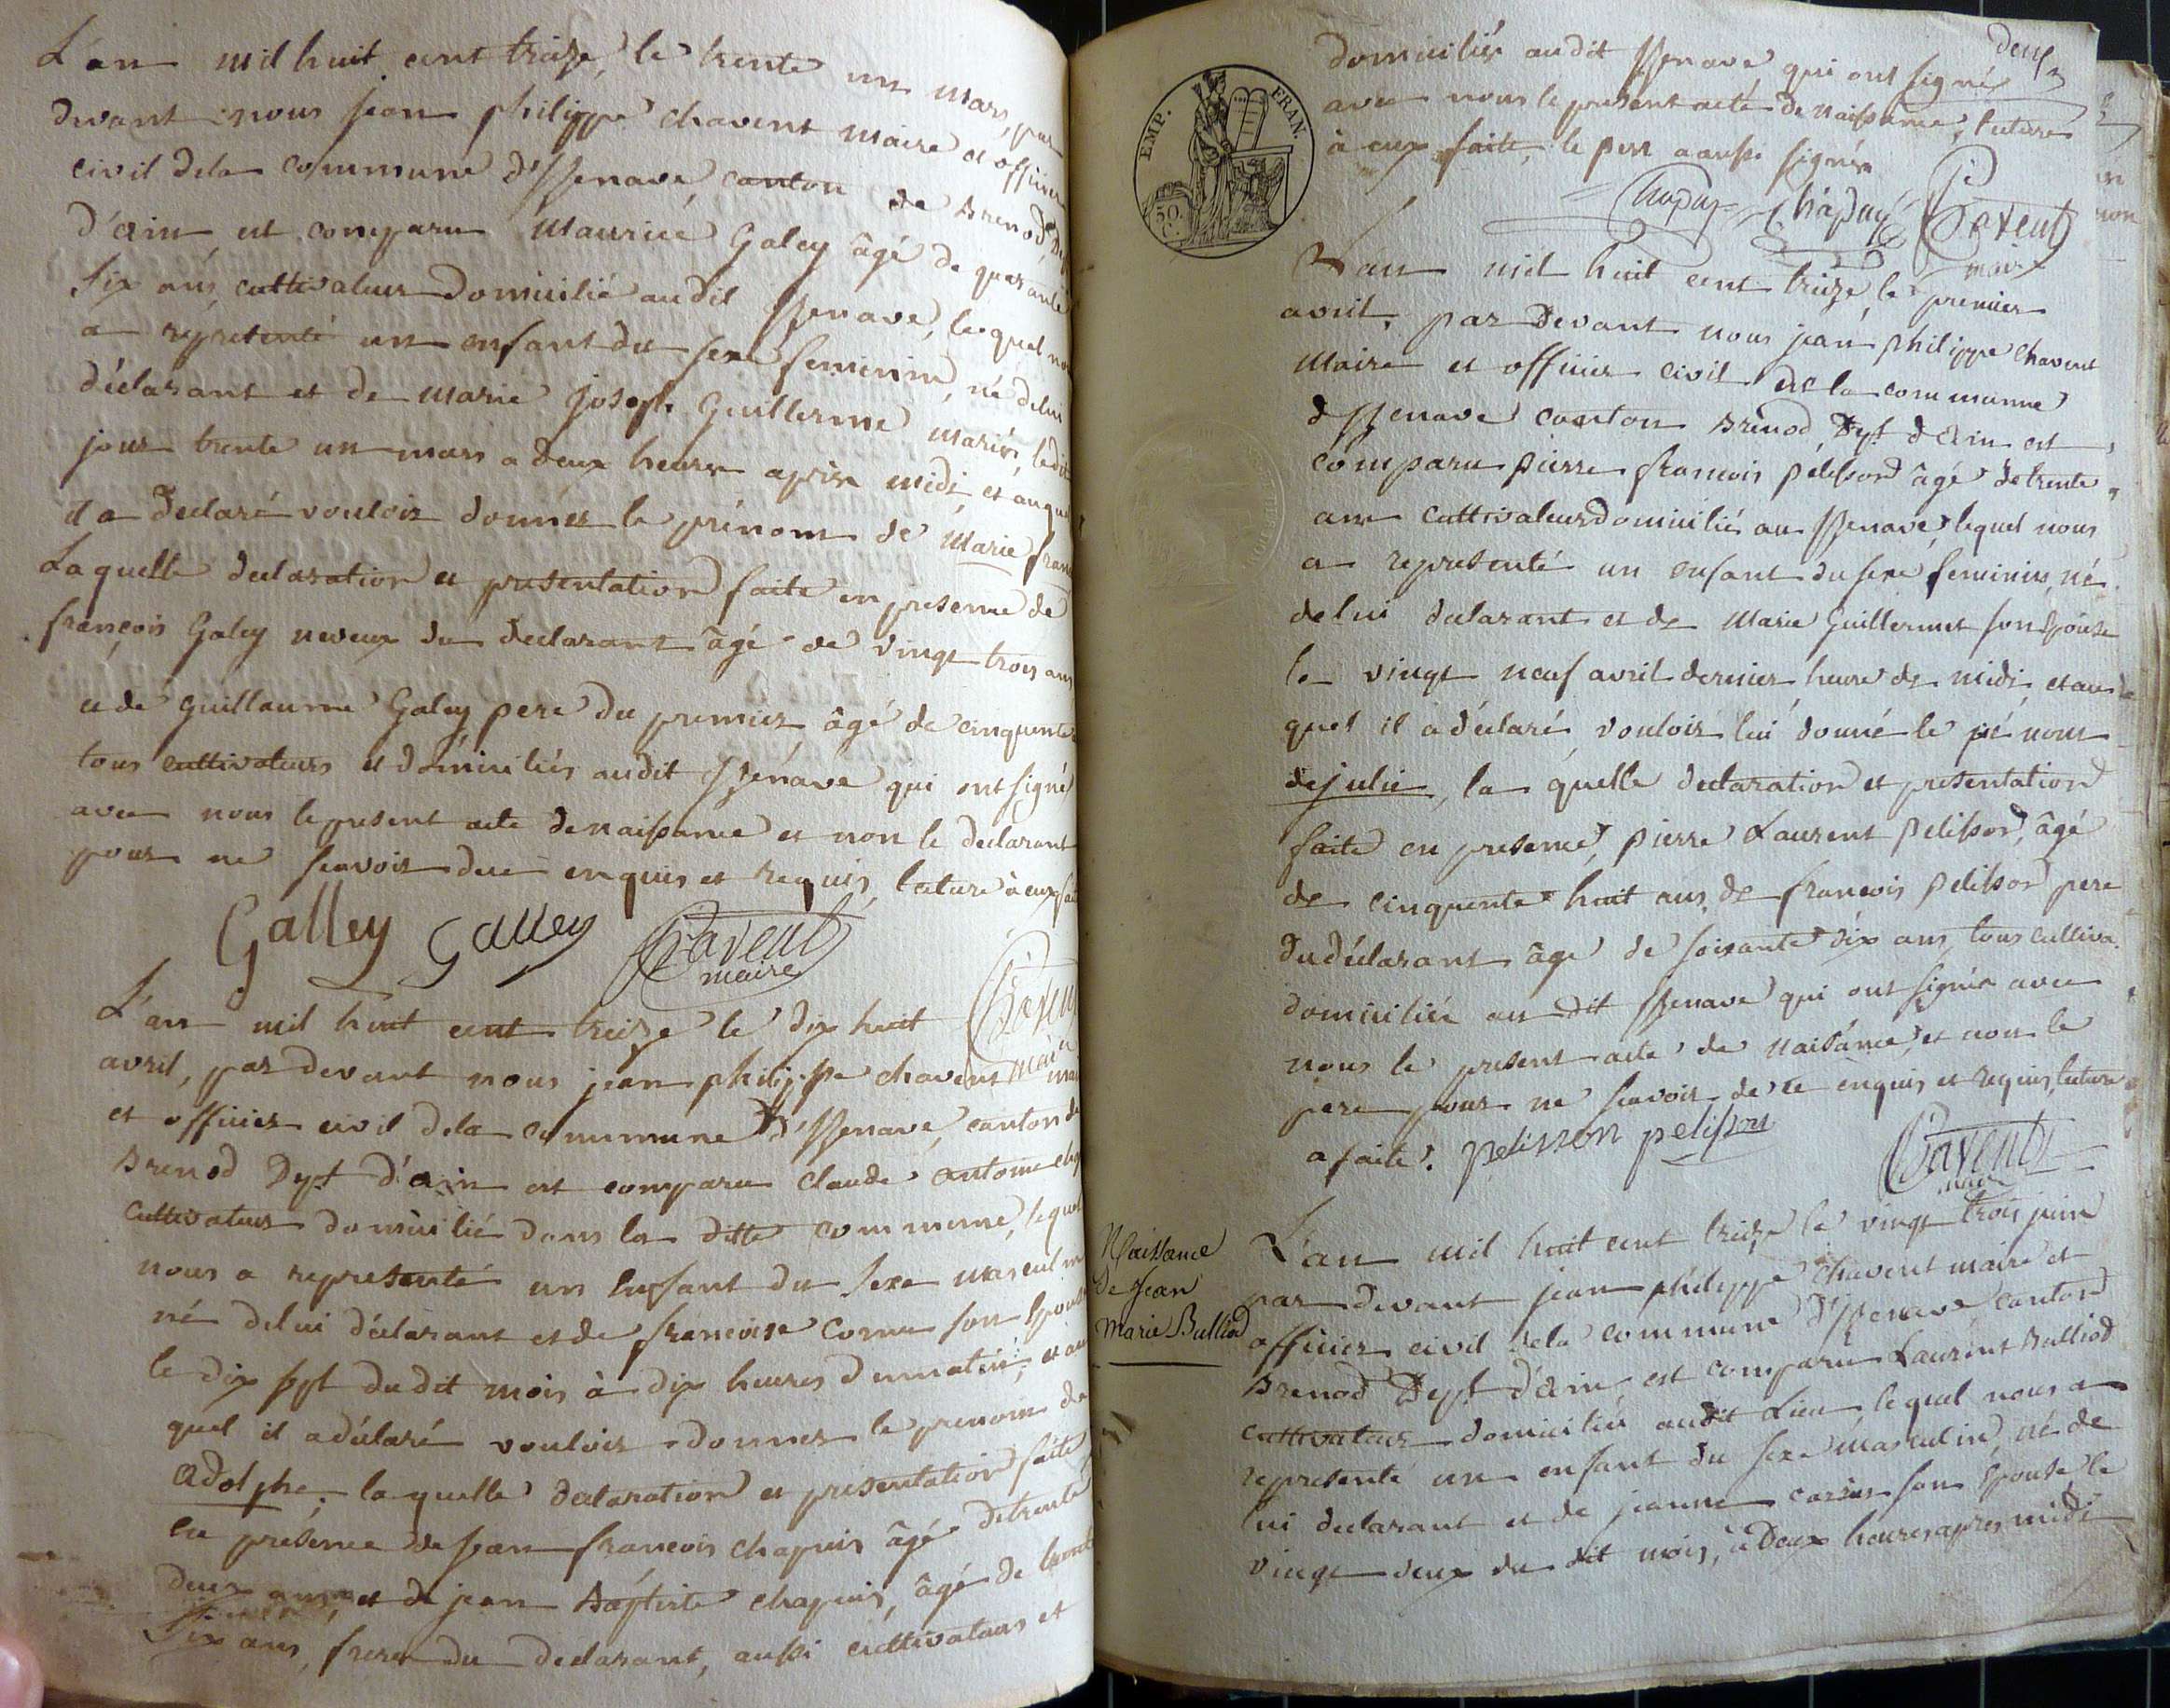 L'an mil huit cent treize, le trente un mars, par
devant nous jean philippe chavent maire et officier
civil dela commune d'Izenave, canton de Brenod, Dépt
d'ain, est comparu Maurice Galey âgé de quarante
six ans, cultivateur domicilié audit Izenave, lequel nous
a représenté un enfant du sexe feminin, né delui
déclarant et de marie joseph Guillerme mariés, ledit
jour trente un mars a deux heures après midi, et auquel
il a declaré vouloir donner le prénom de Marie
Laquelle declaration et presentation faite en presence de
françois Galey neveux du declarant âgé de vingt trois ans
et de Guillaume Galey pere du premier âgé de cinquante
tous cultivateurs et domiciliés audit Izenave qui ont signé
avec nous le present acte de naissance et non le declarant
pour ne scavoir de ce enquis et requis, lecture à eux fait
Galley Galley Chavent
maire
L'an mil huit cent treize le dix huit Chavent
maire
avril, par devant nous jean philippe chavent maire
et officier civil dela commune d'Izenave, canton de
Brenod Dept d'ain est comparu claude antoine
cultivateur domicilié dans la ditte commune, lequel
nous a representé un Enfant du sexe masculin
né delui déclarant et de françoise Cornu son Epouse
le dix sept dudit mois à dix heures du matin, et au
quel il a déclaré vouloir donner le prenom de
Adolphe. laquelle declaration et presentation faite
en présence de jean françois chapuis âgé de trente
deux ans, et de jean Baptiste chapuis, âgé de trente
six ans, freres du declarant, aussi cultivateurs et
deux
domiciliés audit Izenave qui ont signés
avec nous le présent acte de naissance, lecture
à eux faite, le pere a aussi signé
EMP. FRAN.
50 C.
Chapuy Chapuy Chavent
maire
L'an mil huit cent treize, le premier
avril, par Devant nous jean philippe chavent
Maire et officier civil de la commune
d'Izenave canton Brenod, Dept d'ain est
comparu pierre francois pelisson âgé de trente
ans cultivateur domicilié au Izenave, lequel nous
a representé un enfant du sexe feminin, né
de lui declarant et de Marie Guillermet son Epouse
le vingt neuf avril dernier heure de midi et au
quel il a déclaré vouloir lui donné le pré nom
de julie, la quelle declaration et presentation
faite en presence, pierre Laurent pelisson, âgé
de cinquante huit ans, de francois pelisson pere
du déclarant âge de soixante dix ans, tous cultiva.
domiciliés au dit Izenave qui ont signés avec
nous le present acte de naisance, et non le
pere pour ne scavoir de ce enquis et requis, lecture
a faite. pelisson pelisson
Chavent
maire
Naissance
de Jean
Marie Bulliod
L'an mil huit cent treize le vingt trois juin
par devant jean philippe chavent maire et
officier civil dela commune d'Izenave canton
Brenod Dept d'ain, est comparu Laurent Bulliod
cultivateur domicilié audit Lieu, lequel nous a
representé un enfant du sexe masculin, né de
lui declarant et de jeanne son Epouse, le
vingt deux du dit mois, à Deux heures apres midi